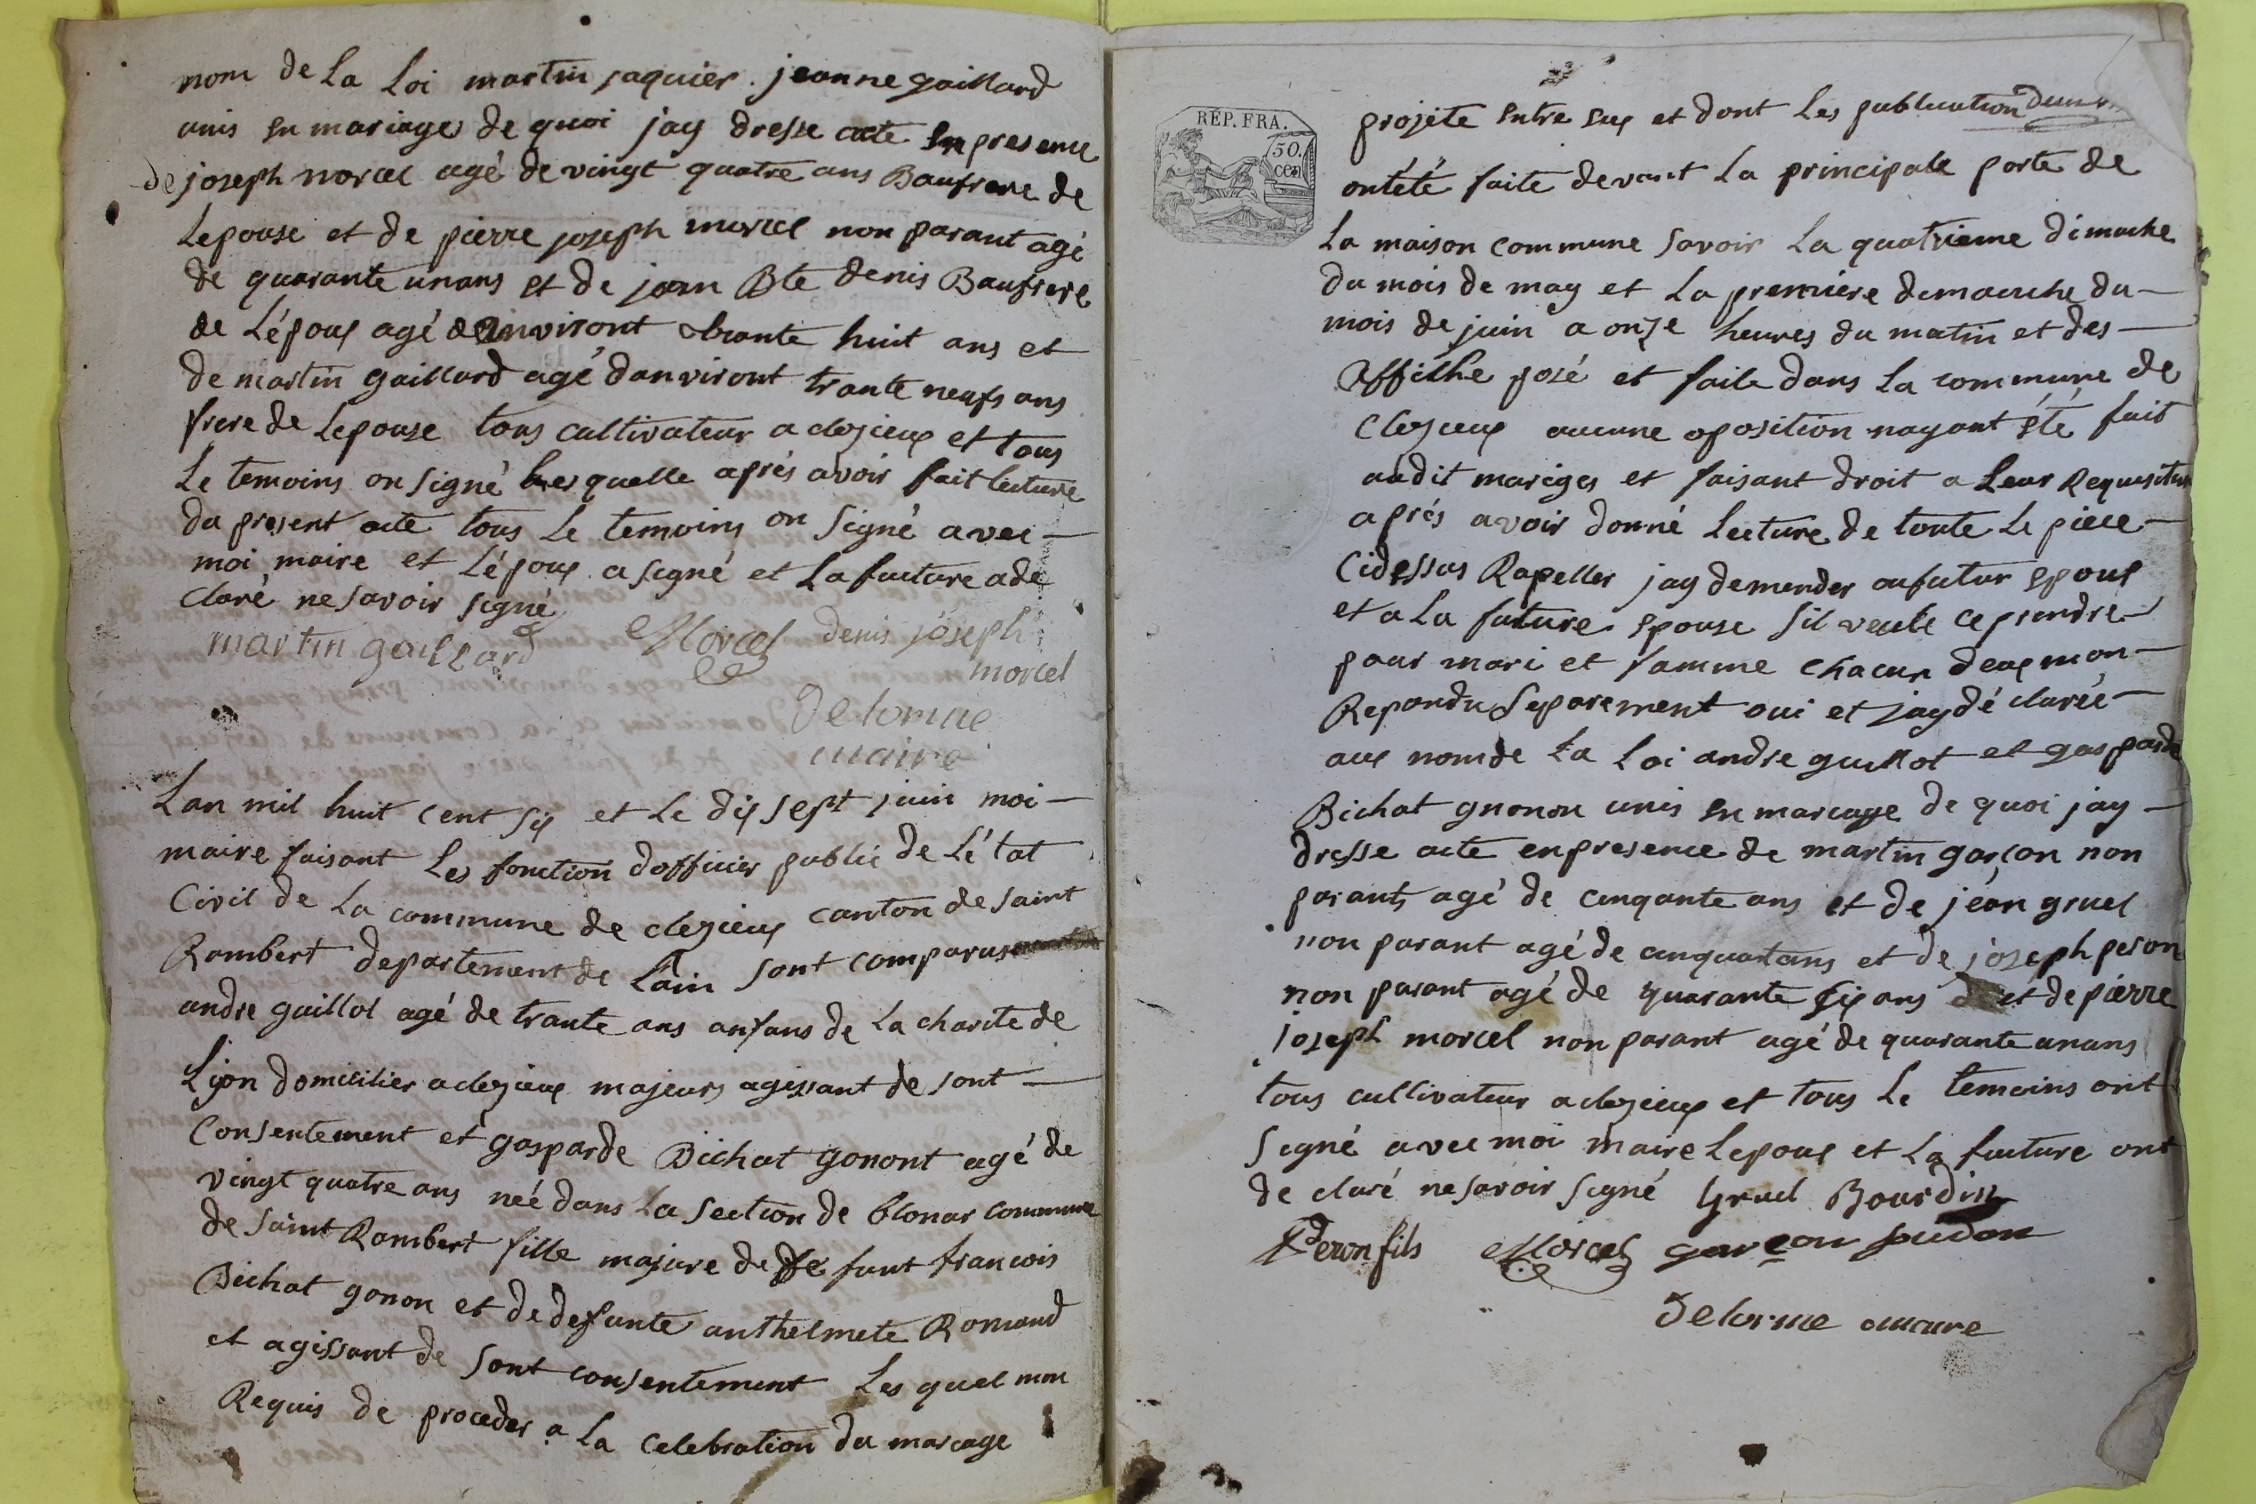 nom de La Loi martin jaquier. jeanne gaillard
unis en mariages de quoi jay dresse acte en presence
de joseph morcel agé de vingt quatre ans Baufrere de
Lepouse et de pierre joseph morcel non parant agé
de quarante unans et de jean Bte denis Baufrere
de Lépoux agé danviront trante huit ans et
de martin gaillard agé danviront trante neufs ans
frere de Lepouse tous cultivateur a clezieux et tous
Le temoins on signé lesquelle aprés avoir fait lecture
du present acte tous Le temoins on signé avec
moi maire et Lépoux a signé et La future a dé
claré ne savoir signé
martin gaillard Morcel denis joseph
morcel
Delorme
maire
Lan mil huit cent six et Le dix sept juin moi
maire faisant Les fonction dofficier public de Lé tat
Civil de La commune de clezieux canton de saint
Rambert departement de Lain sont comparus
andre guillot agé de trante ans anfans de La charite de
Lyon domicilier a clezieux majeurs agissant de sont
Consentement et gasparde Bichat gonont agé de
vingt quatre ans neé dans La section de blonas commune
de saint Rambert fille majure de fé funt francois
Bichat gonon et de defunte anthelmete Romand
et agissant de sont consentement Les quel mon
Requis de proceder a La celebration du mariage
RÉP. FRA.
50.
cen
projete entre eux et dont Les publication
ontété faite devant La principale porte de
La maison commune savoir La quatrieme dimache
du mois de may et La premiere dimanche du
mois de juin a onze heures du matin et des
Affiche posé et faite dans La commune de
Clezieux aucune oposition nayant été fait
audit mariges et faisant droit a Leur Requisition
aprés avoir donné Lecture de toute Le piece
Cidessus Rapeller jay demender aufutur epoux
et a La future epouse sil veule ce prendre
pour mari et famme chacun deux mon
Repondu separement oui et jay dé clarée
aux nom de La Loi andre guillot et gasparde
Bichat gnonon unis en mariage de quoi jay
dresse acte en presence de martin garçon non
parant agé de cinqante ans et de jéan gruel
non parant agé de cinquantans et de joseph peron
non parant agé de quarante six ans et de pierre
joseph morcel non parant agé de quarante unans
tous cultivateur a clezieux et tous Le temoins ont
signé avec moi maire Lepoux et La future ont
de claré ne savoir signé Gruel Bourdin
Peron fils Morcel garçon
Delorme maire